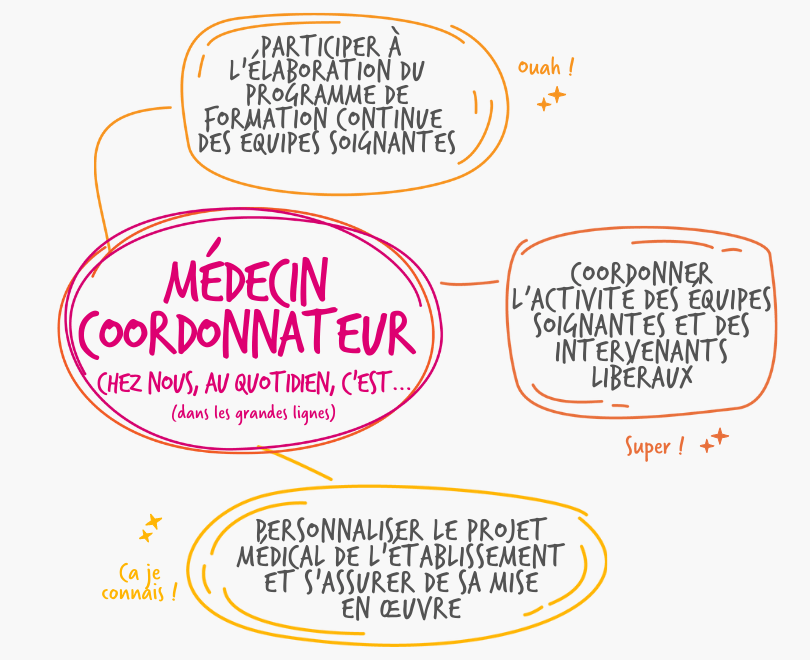 PARTICIPER À
L'ÉLABORATION DU
PROGRAMME DE
FORMATION CONTINUE
DES ÉQUIPES SOIGNANTES
Ouah !
MÉDECIN
COORDONNATEUR
CHEZ NOUS, AU QUOTIDIEN, C'EST...
(dans les grandes lignes)
COORDONNER
L'ACTIVITÉ DES ÉQUIPES
SOIGNANTES ET DES
INTERVENANTS
LIBÉRAUX
Super !
PERSONNALISER LE PROJET
MÉDICAL DE L'ÉTABLISSEMENT
ET S'ASSURER DE SA MISE
EN ŒUVRE
Ca je
connais !